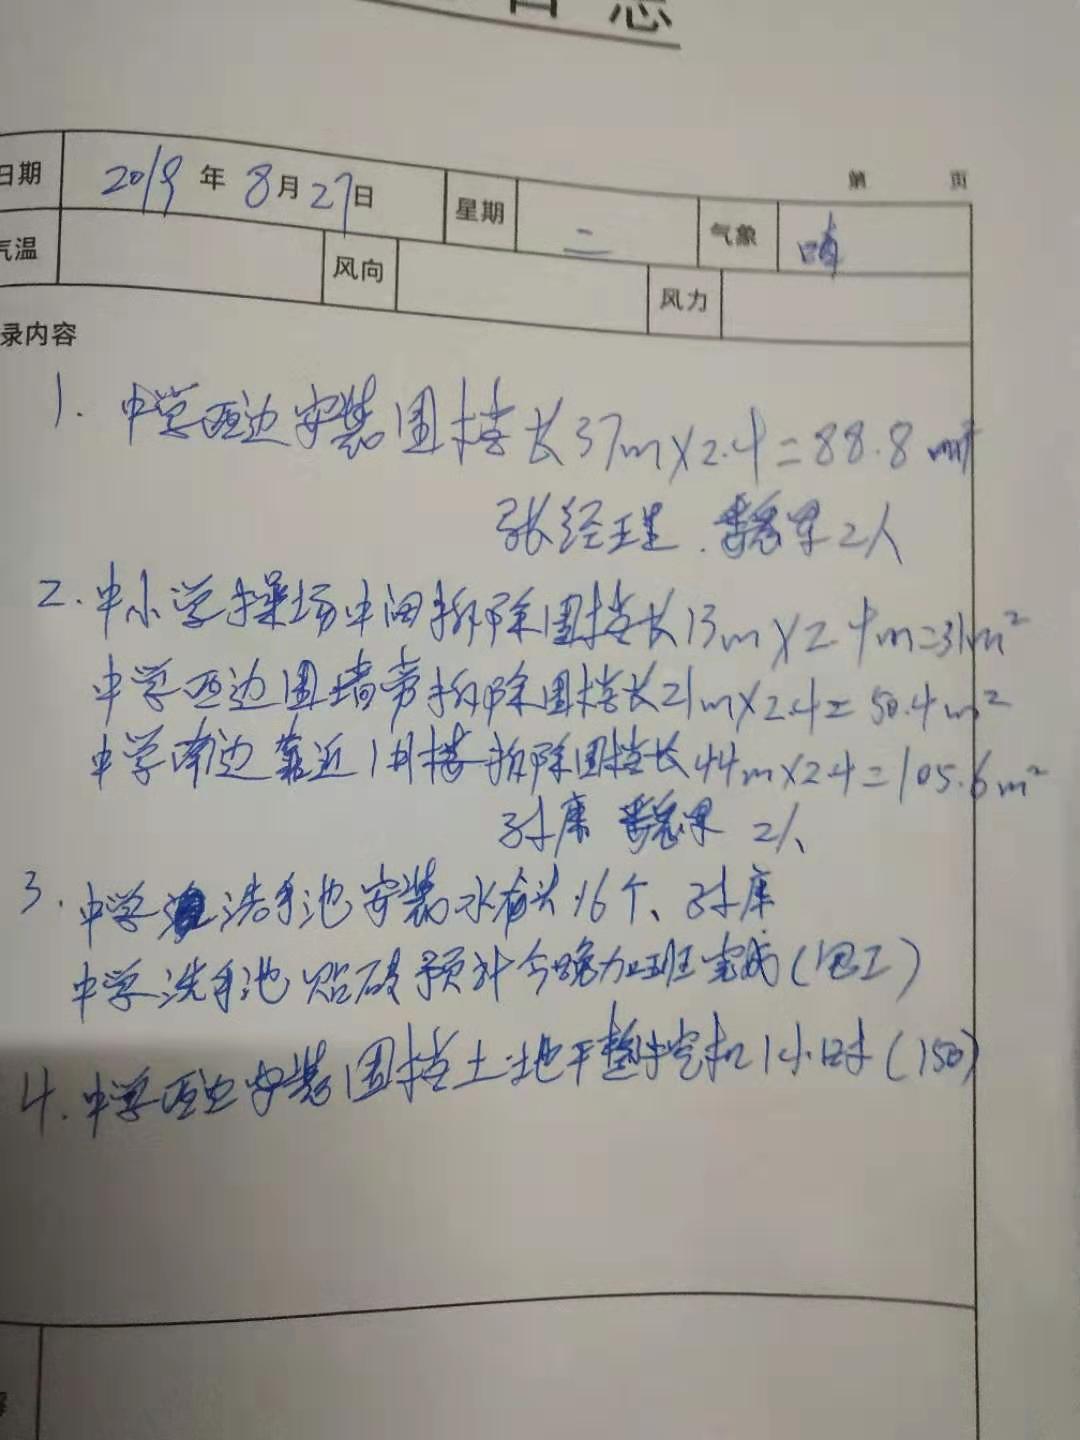 日志
第 页
日期 2019年8月27日 星期 二 气象 晴
气温 风向 风力
录内容
1. 中学西边安装围挡长37m×2.4=88.8m²
张经理. 2人
2. 中小学操场中间拆除围挡长13m×2.4m=31m²
中学西边围墙旁拆除围挡长21m×2.4=50.4m²
中学南边靠近1#楼拆除围挡长44m×2.4=105.6m²
2人
3. 中学洗手池安装水龙头16个、
中学洗手池贴砖预计今晚加班完成(包工)
4. 中学西边安装围挡土地平整挖机1小时(150)